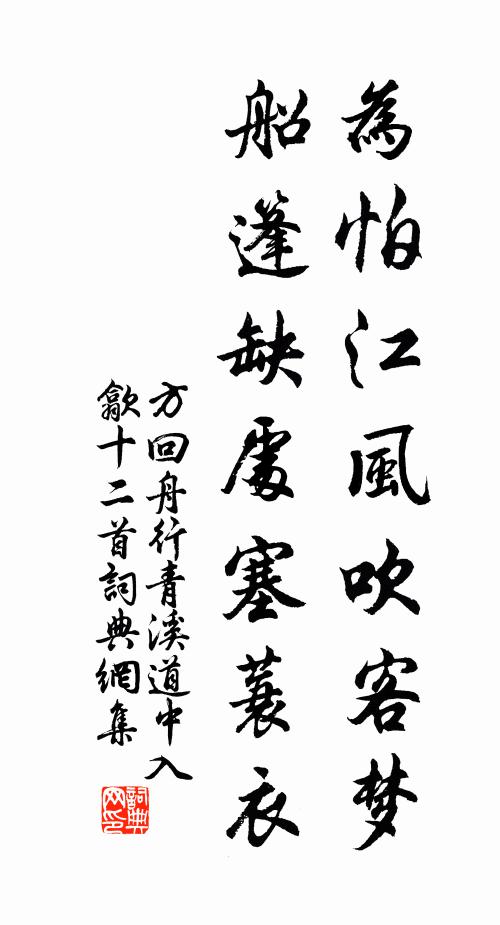 為怕江風吹客梦
船篷缺處塞蓑衣
方回舟行青溪道中入
歙十二首詞典網集
詞典
网印